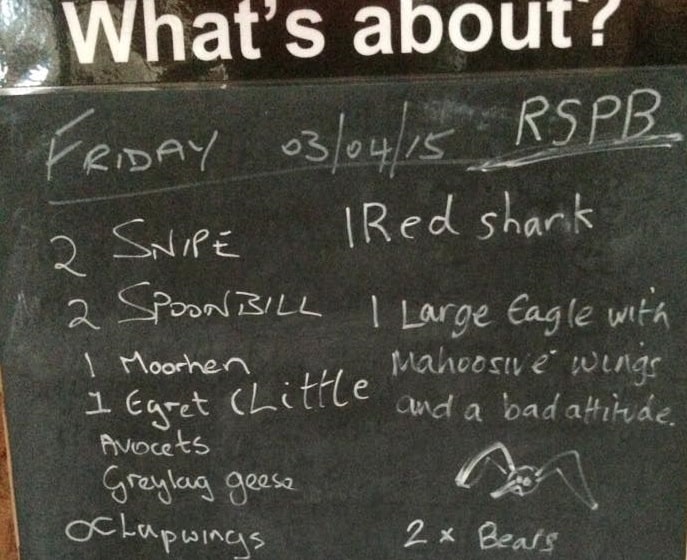 What's about?
FRIDAY 03/04/15 RSPB
2 SNIPE
2 SPOONBILL
1 Moorhen
1 Egret (Little
Avocets
Greylag geese
Lapwings
1 Red shark
1 Large Eagle with
Mahoosive wings
and a bad attitude.
2 x Bears